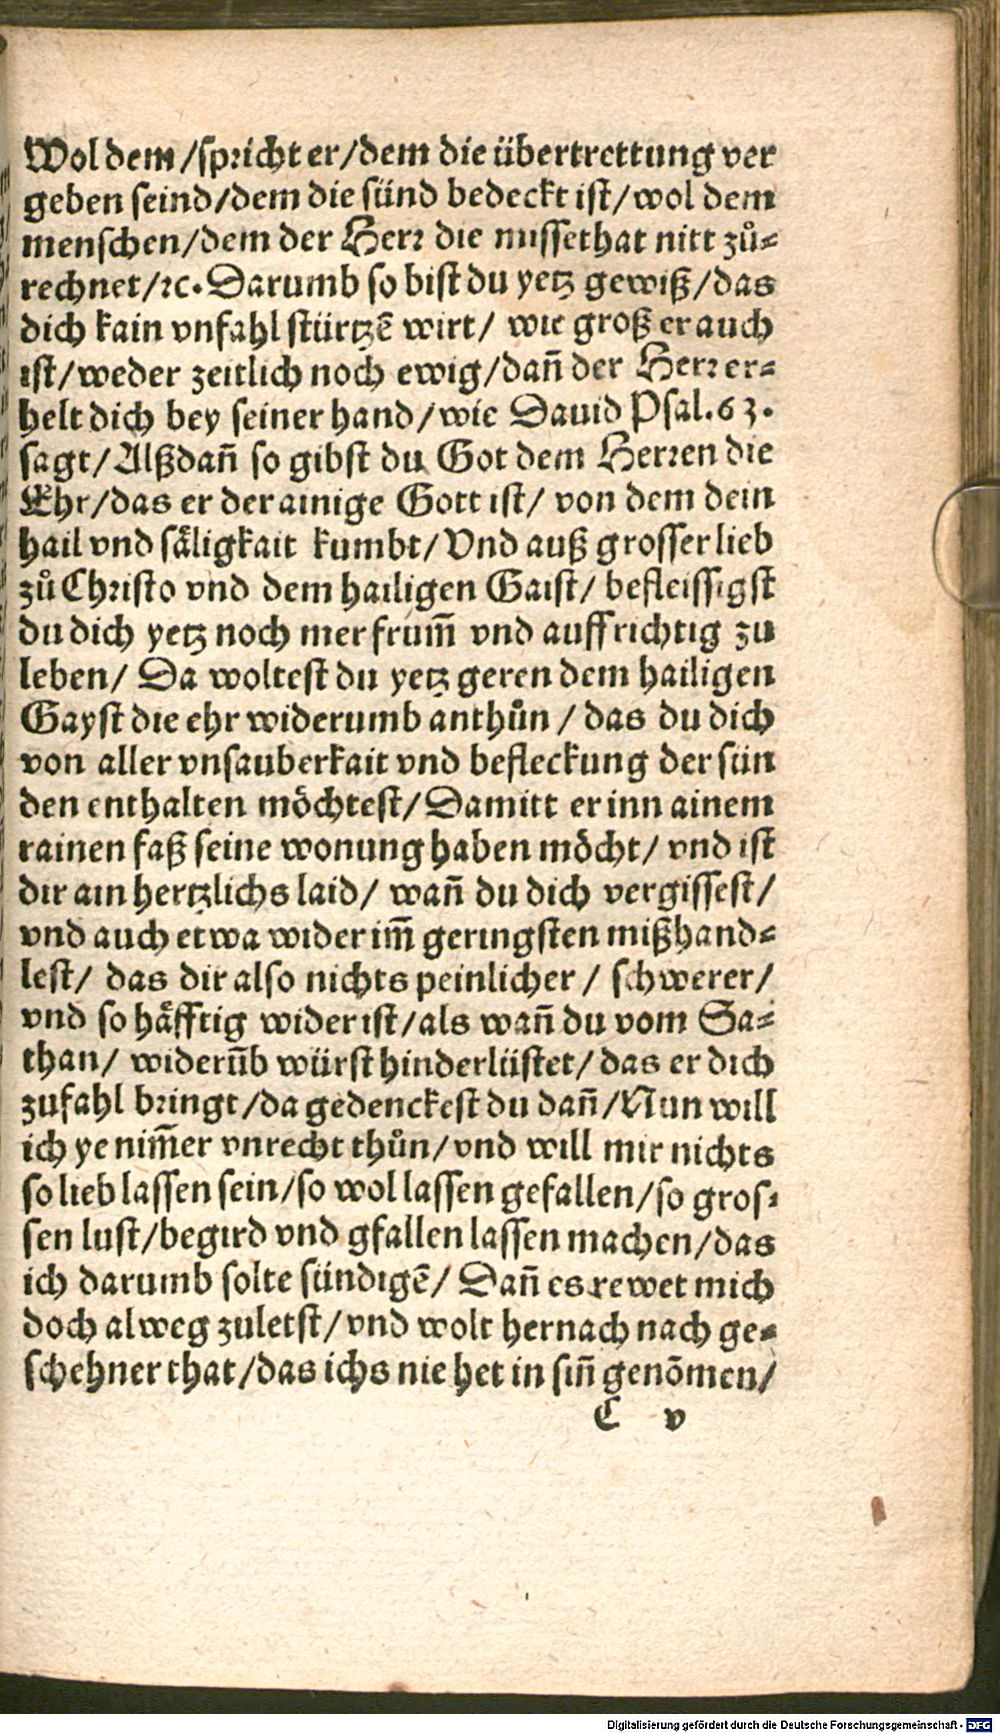 Wol dem /spricht er/dem die übertrettung ver
geben seind/dem die sünd bedeckt ist/wol dem
menschen/dem der Herr die missethat nitt zů⸗
rechnet/ꝛc. Darumb so bist du yetz gewiß/das
dich kain vnfahl stürtzē wirt/ wie groß er auch
ist/weder zeitlich noch ewig/dañ der Herr er⸗
helt dich bey seiner hand/wie Dauid Psal.63.
sagt/Alßdañ so gibst du Got dem Herren die
Ehr/das er der ainige Gott ist/ von dem dein
hail vnd säligkait kumbt/Vnd auß grosser lieb
zů Christo vnd dem hailigen Gaist/ befleissigst
du dich yetz noch mer frum̃ vnd auffrichtig zu
leben/ Da woltest du yetz geren dem hailigen
Gayst die ehr widerumb anthůn / das du dich
von aller vnsauberkait vnd befleckung der sün
den enthalten möchtest/Damitt er inn ainem
rainen faß seine wonung haben möcht/ vnd ist
dir ain hertzlichs laid/ wañ du dich vergissest/
vnd auch etwa wider im̃ geringsten mißhand⸗
lest/ das dir also nichts peinlicher / schwerer/
vnd so häfftig wider ist/als wañ du vom Sa⸗
than/ widerūb würst hinderlüstet/das er dich
zufahl bringt/da gedenckest du dañ/Nun will
ich ye nim̃er vnrecht thůn/vnd will mir nichts
so lieb lassen sein/so wol lassen gefallen/so gros⸗
sen lust/begird vnd gfallen lassen machen/das
ich darumb solte sündigē/ Dañ es rewet mich
doch alweg zuletst/vnd wolt hernach nach ge⸗
schehner that/das ichs nie het in siñ genōmen/
C v
Digitalisierung gefördert durch die Deutsche Forschungsgemeinschaft - DFG